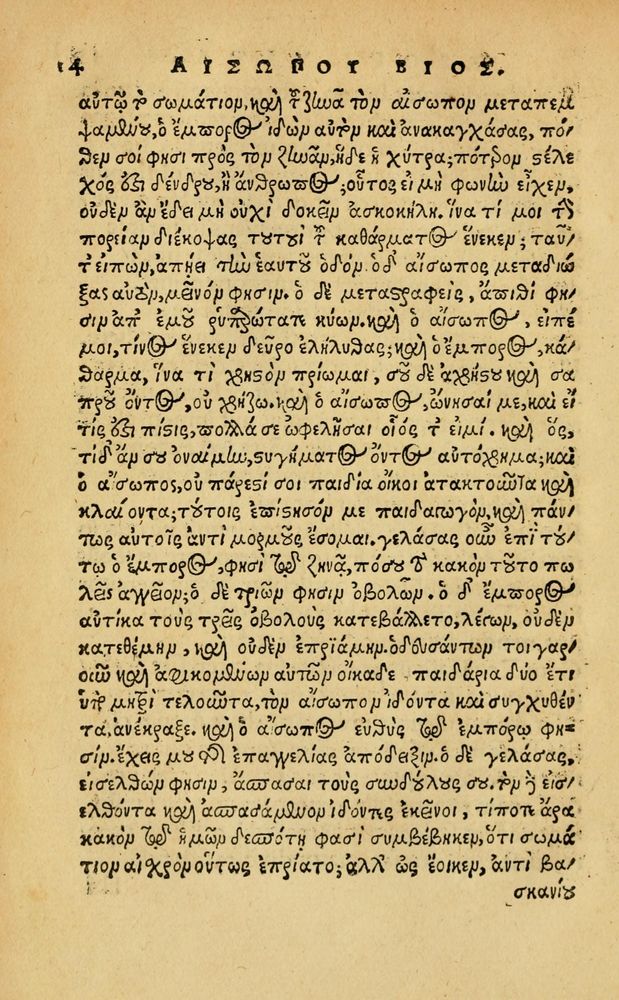 14 ΑΙΣΩΠΟΥ ΒΙΟΣ.
αὐτῷ τὸ σωμάτιον, καὶ τοῦ ζωνᾶ τὸν αἴσωπον μεταπεμ
ψαμένου, ὁ ἔμπορος ἰδὼν αὐτὸν καὶ ἀνακαγχάσας, πό-
θεν σοί φησι πρὸς τὸν ζωνᾶν, ἥδε ἡ χύτρα; πότερον στέλε
χός ἐστι δένδρου, ἢ ἄνθρωπος; οὗτος εἰ μὴ φωνὴν εἶχεν,
οὐδὲν ἂν ἔδει μὴ οὐχὶ δοκεῖν ἀσκοκήλη. ἵνα τί μοι τὴν
πορείαν διέκοψας τουτουὶ τοῦ καθάρματος ἕνεκεν; ταῦ-
τ' εἰπὼν, ἀπῄει τὴν ἑαυτοῦ ὁδόν. ὁ δ' αἴσωπος μεταδιώ
ξας αὐτὸν, μεῖνόν φησιν. ὁ δὲ μεταστραφεὶς, ἄπιθί φη-
σιν ἀπ' ἐμοῦ ῥυπρώτατε κύων. καὶ ὁ αἴσωπος, εἰπέ
μοι, τίνος ἕνεκεν δεῦρο ἐλήλυθας; καὶ ὁ ἔμπορος, κά-
θαρμα, ἵνα τὶ χρηστὸν πρίωμαι, σοῦ δὲ ἀχρήστου καὶ σα
προῦ ὄντος, οὐ χρῄζω. καὶ ὁ αἴσωπος, ὤνησαί με, καὶ εἴ
τίς ἐστι πίστις, πολλά σε ὠφελῆσαι οἷός τ' εἰμί. καὶ ὃς,
τί δ' ἄν σου ὀναίμην, στυγήματος ὄντος αὐτόχρημα; καὶ
ὁ αἴσωπος, οὐ πάρεστί σοι παιδία οἴκοι ἀτακτοῦντα καὶ
κλαίοντα; τούτοις ἐπίστησόν με παιδαγωγὸν, καὶ πάν-
τως αὐτοῖς ἀντὶ μορμοῦς ἔσομαι. γελάσας οὖν ἐπὶ τού-
τῳ ὁ ἔμπορος, φησὶ τῷ ζηνᾷ, πόσου τὸ κακὸν τοῦτο πω
λεῖς ἀγγεῖον; ὁ δὲ τριῶν φησιν ὀβολῶν. ὁ δ' ἔμπορος
αὐτίκα τοὺς τρεῖς ὀβολοὺς κατεβάλλετο, λέγων, οὐδὲν
κατεθέμην, καὶ οὐδὲν ἐπριάμην. ὁδευσάντων τοιγαρ-
οῦν καὶ ἀφικομένων αὐτῶν οἴκαδε παιδάρια δύο ἔτι
ὑπὸ μητρὶ τελοῦντα, τὸν αἴσωπον ἰδόντα καὶ συγχυθέν
τα, ἀνέκραξε. καὶ ὁ αἴσωπος εὐθὺς τῷ ἐμπόρῳ φη-
σὶν. ἔχεις μου τῆς ἐπαγγελίας ἀπόδειξιν. ὁ δὲ γελάσας,
εἰσελθών φησιν, ἄσπασαι τοὺς συνδούλους σου. τὸν δὲ εἰσ-
ελθόντα καὶ ἀσπασάμενον ἰδόντες ἐκεῖνοι, τί ποτε ἄρα
κακὸν τῷ ἡμῶν δεσπότῃ φασὶ συμβέβηκεν, ὅτι σωμά
τιον αἰσχρὸν οὕτως ἐπρίατο; ἀλλ' ὡς ἔοικεν, ἀντὶ βα-
σκανίου